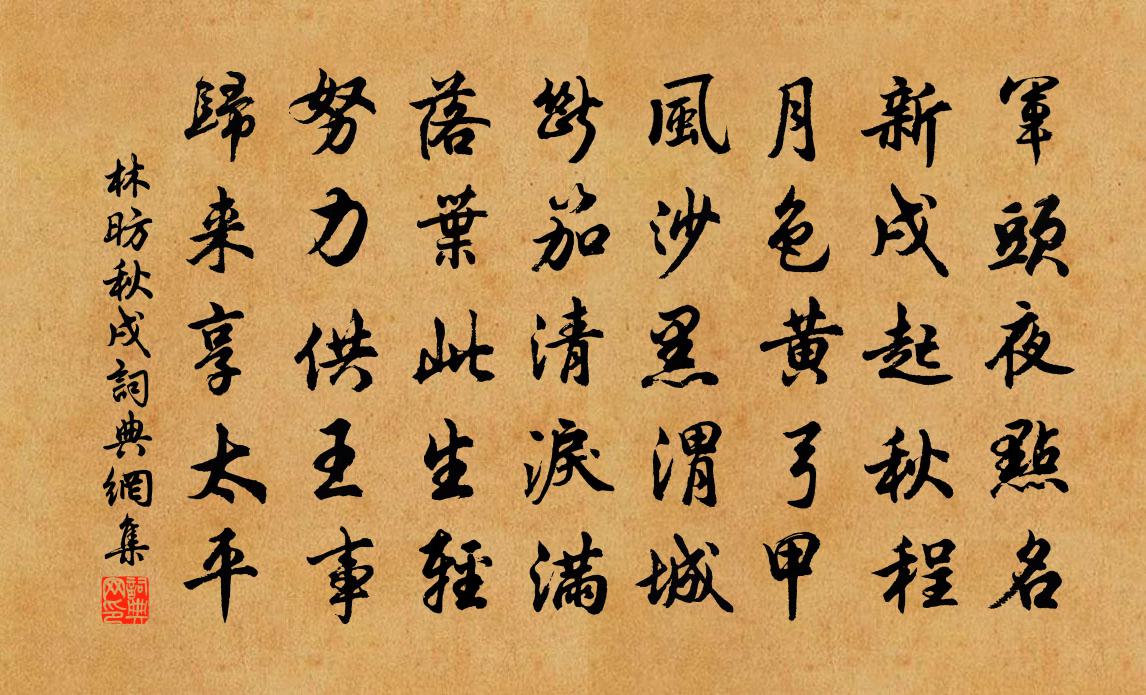 軍頭夜點名
新戍起秋程
月色黄弓甲
風沙黑渭城
斷笳清淚滿
落葉此生輕
努力供王事
歸来享太平
林昉秋戍詞典網集
詞典网印